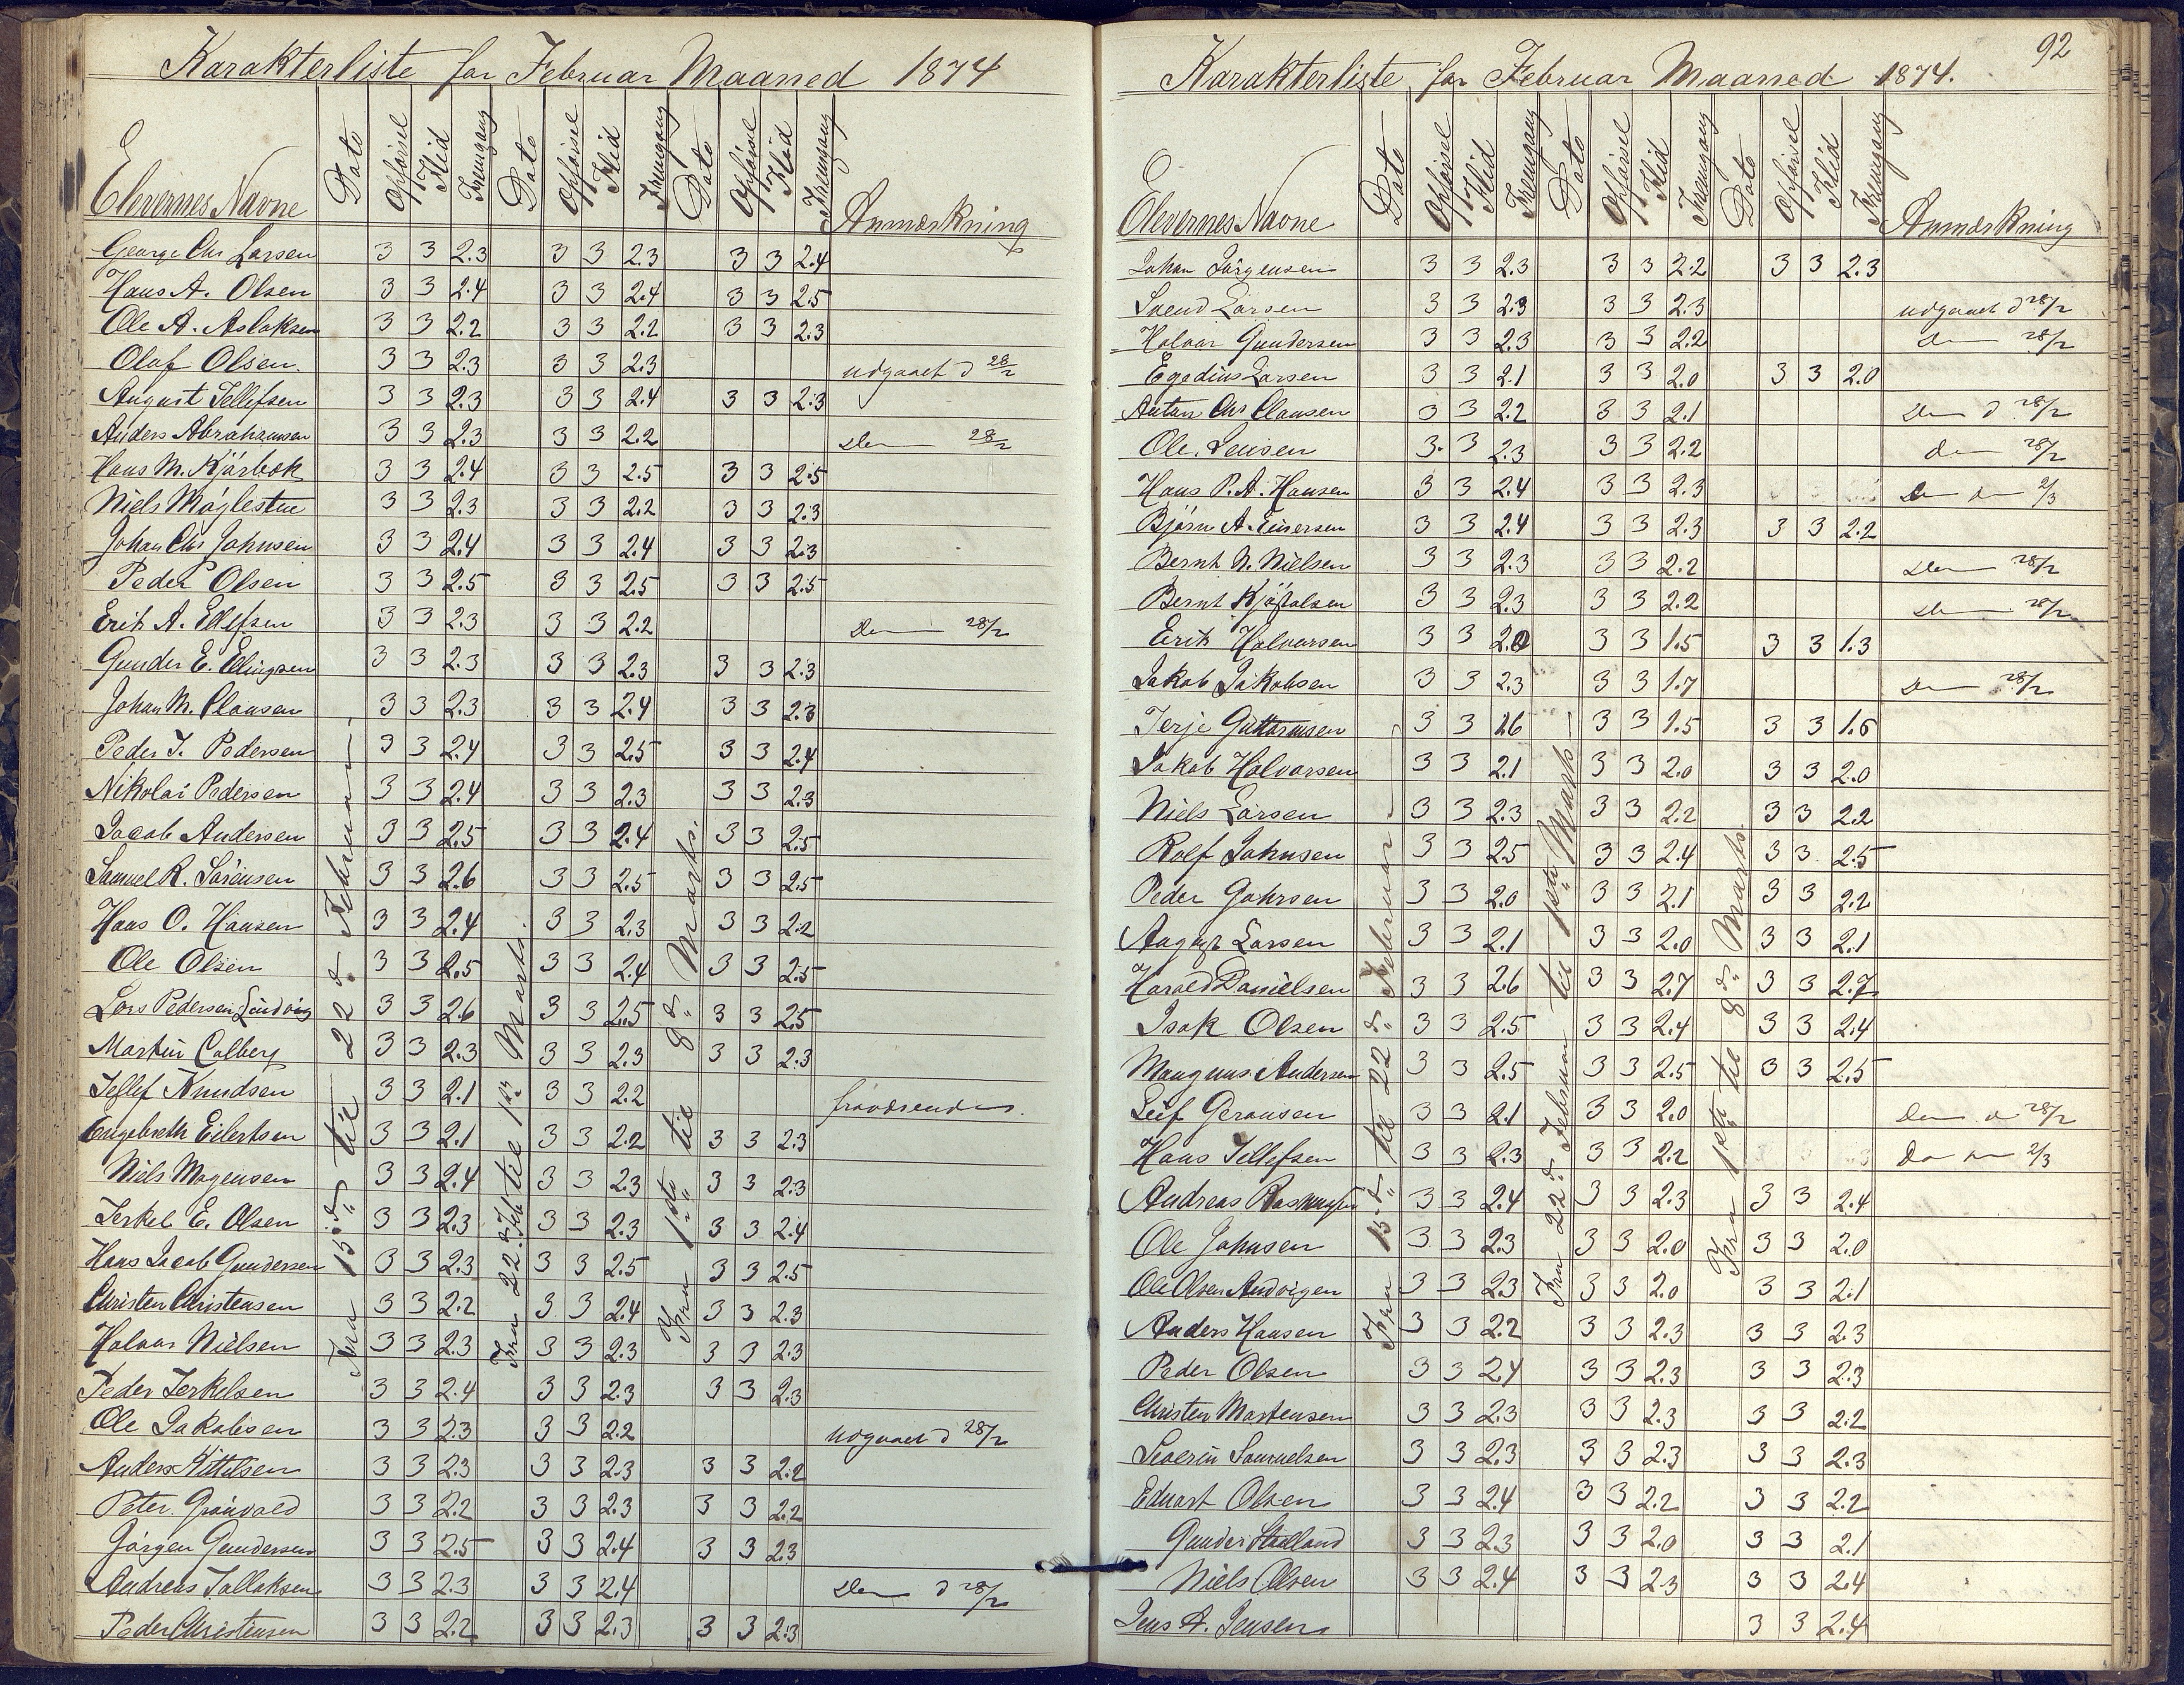 Karakterliste for Februar Maaned 1874
Elevernes Navne Dato Opførsel Flid Fremgang Dato Opførsel Flid Fremgang Dato Opførsel Flid Fremgang Anmærkning
Fra 15de til 22de Februar
Fra 22de Feb til 1ste Marts.
Fra 1ste til 8de Marts.
George Chr Larsen 3 3 2.3 3 3 2.3 3 3 2.4
Hans A. Olsen 3 3 2.4 3 3 2.4 3 3 2.5
Ole A. Aslaksen 3 3 2.2 3 3 2.2 3 3 2.3
Olaf Olsen. 3 3 2.3 3 3 2.3 udgaaet d 28/2
August Tellefsen 3 3 2.3 3 3 2.4 3 3 2.3
Anders Abrahamsen 3 3 2.3 3 3 2.2 28/2
Hans M. Kjørbok 3 3 2.4 3 3 2.5 3 3 2.5
Niels Møglestue 3 3 2.3 3 3 2.2 3 3 2.3
Johan Chr Johnsen 3 3 2.4 3 3 2.4 3 3 2.3
Peder Olsen 3 3 2.5 3 3 2.5 3 3 2.5
Erik A. Ellefsen 3 3 2.3 3 3 2.2 28/2
Gunder E. Ellingsen 3 3 2.3 3 3 2.3 3 3 2.3
Johan M. Clausen 3 3 2.3 3 3 2.4 3 3 2.3
Peder J. Pedersen 3 3 2.4 3 3 2.5 3 3 2.4
Nikolai Pedersen 3 3 2.4 3 3 2.3 3 3 2.3
Jacob Andersen 3 3 2.5 3 3 2.4 3 3 2.5
Samuel R. Sørensen 3 3 2.6 3 3 2.5 3 3 2.5
Hans O. Hansen 3 3 2.4 3 3 2.3 3 3 2.2
Ole Olsen 3 3 2.5 3 3 2.4 3 3 2.5
Lars Pedersen Lindvig 3 3 2.6 3 3 2.5 3 3 2.5
Martin Calberg 3 3 2.3 3 3 2.3 3 3 2.3
Tellef Knudsen 3 3 2.1 3 3 2.2 fraværende.
Engebreth Eilertsen 3 3 2.1 3 3 2.2 3 3 2.3
Niels Mogensen 3 3 2.4 3 3 2.3 3 3 2.3
Terkel E. Olsen 3 3 2.3 3 3 2.3 3 3 2.4
Hans Jacob Gundersen 3 3 2.3 3 3 2.5 3 3 2.5
Christen Christensen 3 3 2.2 3 3 2.4 3 3 2.3
Halvor Nielsen 3 3 2.3 3 3 2.3 3 3 2.3
Peder Terkelsen 3 3 2.4 3 3 2.3 3 3 2.3
Ole Jakobsen 3 3 2.3 3 3 2.2 udgaaet d 28/2
Anders Kittelsen 3 3 2.3 3 3 2.3 3 3 2.2
Peter Grønvold 3 3 2.2 3 3 2.3 3 3 2.2
Jørgen Gundersen 3 3 2.5 3 3 2.4 3 3 2.3
Andreas Tallaksen 3 3 2.3 3 3 2.4 d 28/2
Peder Christensen 3 3 2.2 3 3 2.3 3 3 2.3
92
Karakterliste for Februar Maaned 1874.
Elevernes Navne Dato Opførsel Flid Fremgang Dato Opførsel Flid Fremgang Dato Opførsel Flid Fremgang Anmærkning
Fra 15de til 22de Februar
Fra 22de Februar til 1ste Marts
Fra 1ste til 8de Marts.
Johan Jørgensen 3 3 2.3 3 3 2.2 3 3 2.3
Svend Larsen 3 3 2.3 3 3 2.3 udgaaet d 28/2
Halvor Gundersen 3 3 2.3 3 3 2.2 28/2
Egedius Larsen 3 3 2.1 3 3 2.0 3 3 2.0
Anton Chr Clausen 3 3 2.2 3 3 2.1 d 28/2
Ole Jensen 3 3 2.3 3 3 2.2 28/2
Hans P. A. Hansen 3 3 2.4 3 3 2.3 2/3
Bjørn A. Einersen 3 3 2.4 3 3 2.3 3 3 2.2
Bernt N. Nielsen 3 3 2.3 3 3 2.2 28/2
Bernt Kjøstolsen 3 3 2.3 3 3 2.2 28/2
Erik Halvorsen 3 3 2.0 3 3 1.5 3 3 1.3
Jakob Jakobsen 3 3 2.3 3 3 1.7 28/2
Terje Guttormsen 3 3 1.6 3 3 1.5 3 3 1.6
Jakob Halvorsen 3 3 2.1 3 3 2.0 3 3 2.0
Niels Larsen 3 3 2.3 3 3 2.2 3 3 2.2
Rolf Johnsen 3 3 2.5 3 3 2.4 3 3 2.5
Peder Johnsen 3 3 2.0 3 3 2.1 3 3 2.2
August Larsen 3 3 2.1 3 3 2.0 3 3 2.1
Harald Danielsen 3 3 2.6 3 3 2.7 3 3 2.7
Isak Olsen 3 3 2.5 3 3 2.4 3 3 2.4
Maugnus Andersen 3 3 2.5 3 3 2.5 3 3 2.5
Leif Geransen 3 3 2.1 3 3 2.0 28/2
Hans Tellefsen 3 3 2.3 3 3 2.2 2/3
Andreas Rasmussen 3 3 2.4 3 3 2.3 3 3 2.4
Ole Johnsen 3 3 2.3 3 3 2.0 3 3 2.0
Ole Olsen Andvigen 3 3 2.3 3 3 2.0 3 3 2.1
Anders Hansen 3 3 2.2 3 3 2.3 3 3 2.3
Peder Olsen 3 3 2.4 3 3 2.3 3 3 2.3
Christen Mortensen 3 3 2.3 3 3 2.3 3 3 2.2
Severin Samuelsen 3 3 2.3 3 3 2.3 3 3 2.3
Edvart Olsen 3 3 2.4 3 3 2.2 3 3 2.2
Gunder 3 3 2.3 3 3 2.0 3 3 2.1
Niels Olsen 3 3 2.4 3 3 2.3 3 3 2.4
Jens A. Jensen 3 3 2.4